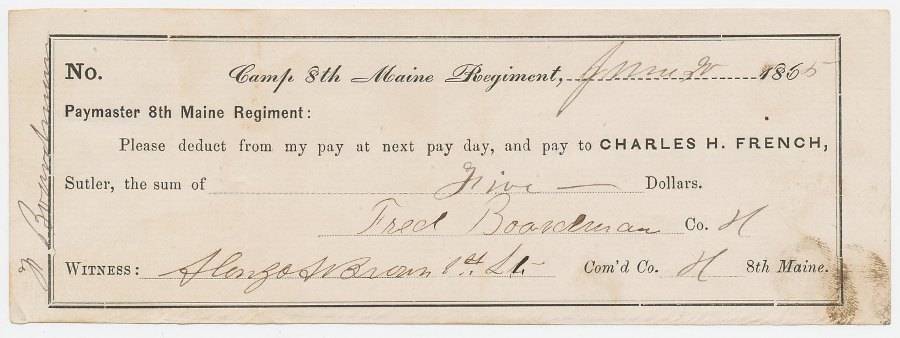 No. Camp 8th Maine Regiment, June 1865
Paymaster 8th Maine Regiment:
Please deduct from my pay at next pay day, and pay to CHARLES H. FRENCH,
Sutler, the sum of Five Dollars.
Fred Boardman Co. H
WITNESS: Alonzo Brown 1st Lt. Com'd Co. H 8th Maine.
Boardman